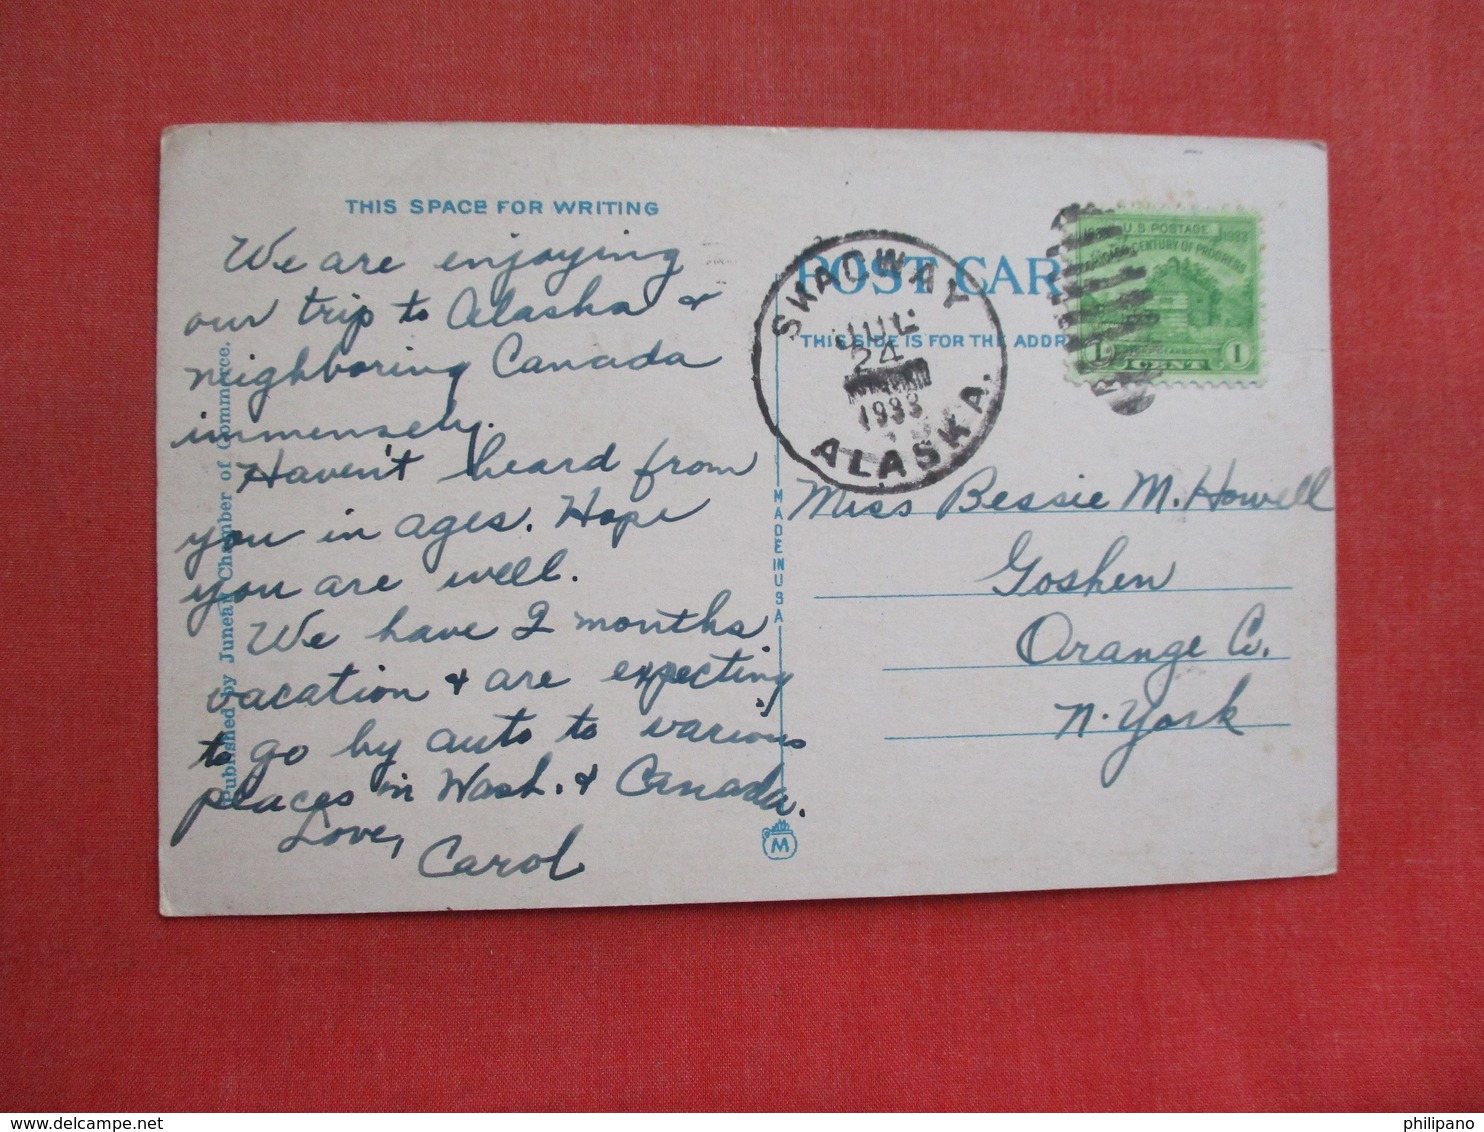 THIS SPACE FOR WRITING
We are enjoying
our trip to Alaska &
neighboring Canada
immensely.
Haven't heard from
you in ages. Hope
you are well.
We have 2 months
vacation & are expecting
to go by auto to various
places in Wash. & Canada.
Love,
Carol
Published by Juneau Chamber of Commerce.
MADE IN USA
M
POST CAR
THIS SIDE IS FOR THE ADDR
SKAGWAY
JUL
24
1933
ALASKA.
U.S. POSTAGE
1933
CENTURY OF PROGRESS
1 CENT 1
Miss Bessie M. Howell
Goshen
Orange Co.
N. York
www.delcampe.net
philipano